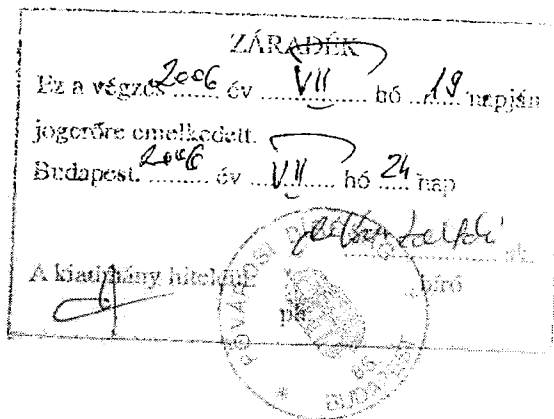 ZÁRADÉK
Ez a végzés 2006 év VII hó 19 napján
jogerőre emelkedett.
Budapest. 2006 év VII hó 24 nap
A kiadmány hiteléül: bíró
ph.
FŐVÁROSI BÍRÓSÁG
BUDAPEST